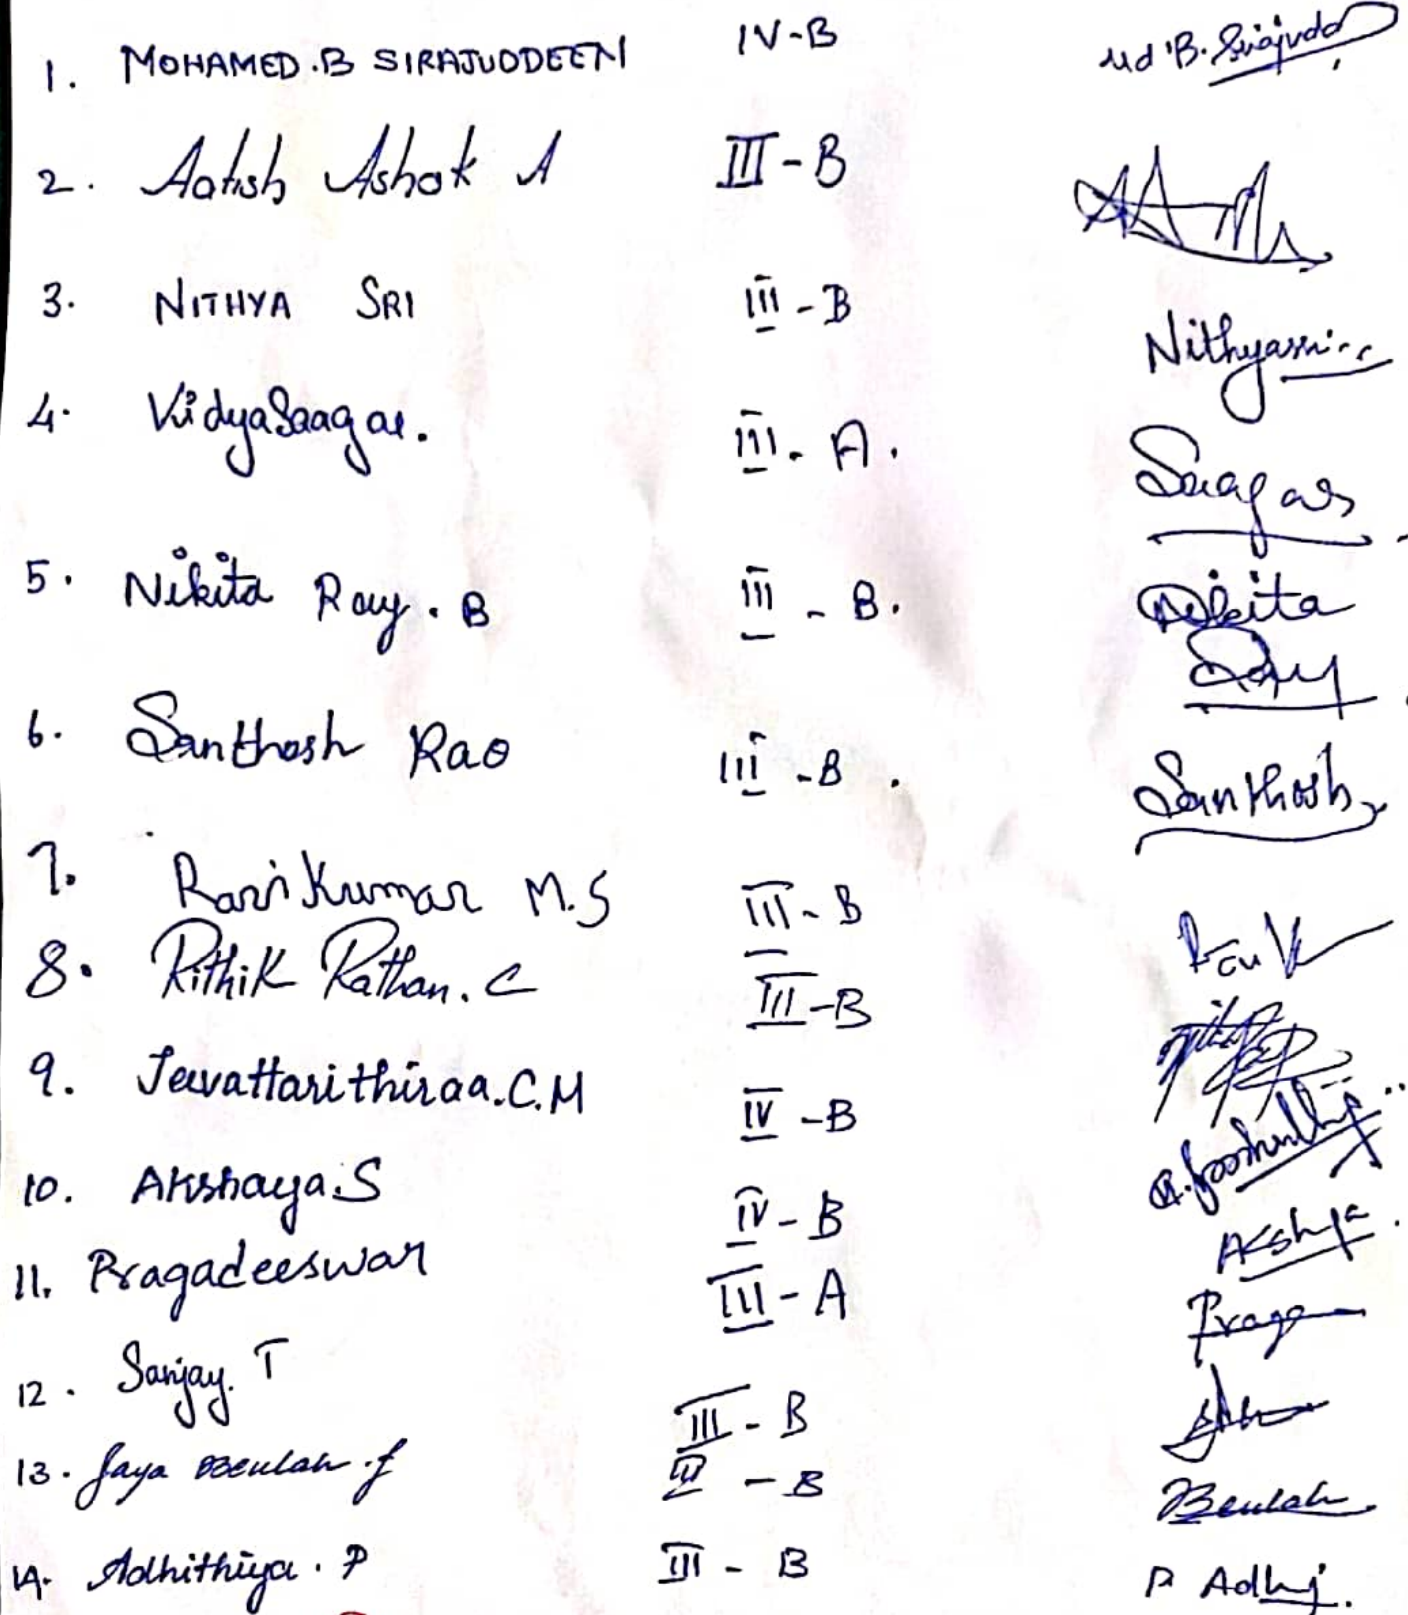 1. MOHAMED.B SIRAJUDDEEN IV-B Md B. Sirajudd
2. Aatish Ashok A III-B
3. NITHYA SRI III-B Nithyasri
4. VidyaSaagar. III-A. Saagar
5. Nikita Ray.B III-B. Nikita Ray
6. Santhosh Rao III-B. Santhosh
7. Ravi Kumar M.S III-B
8. Rithik Rathan.C III-B
9. Jeevattarithiraa.C.M IV-B
10. Akshaya.S IV-B Akshya
11. Pragadeeswar III-A Praga
12. Sanjay.T III-B
13. Jaya Beulah.J IV-B Beulah
14. Adhithiya.P III-B P Adhi.